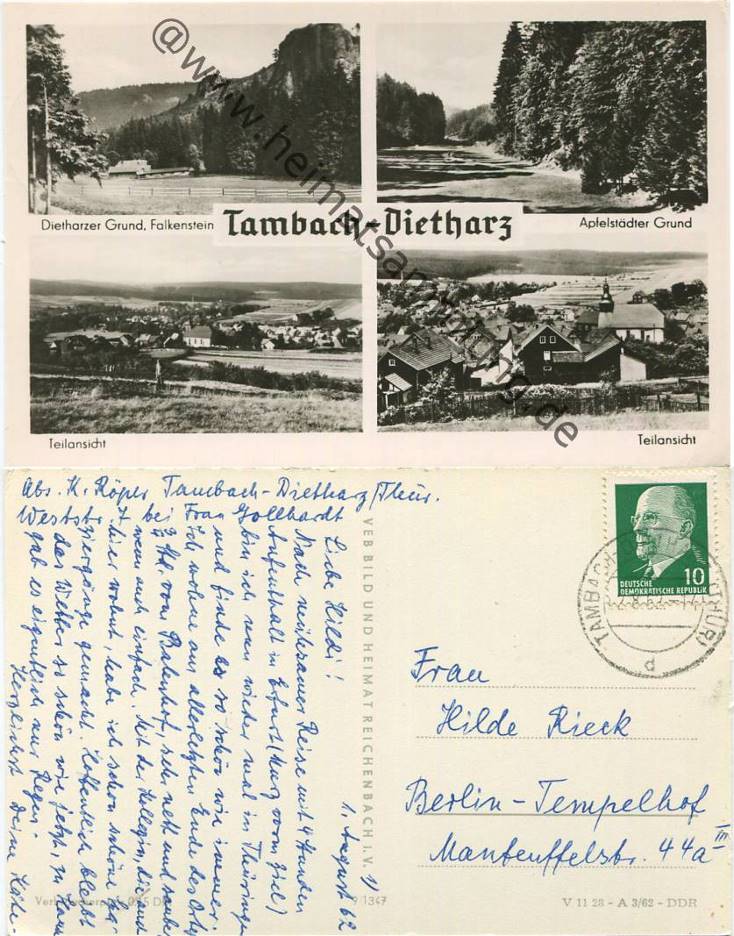 Dietharzer Grund, Falkenstein
Tambach-Dietharz
Apfelstädter Grund
Teilansicht
Teilansicht
@www.heimatsammlung.de
Abs. K. Röper Tambach-Dietharz/Thür.
Weststr. bei Frau Gollhardt
1. August 62
Liebe Hildi!
Nach mühsamer Reise mit 4 Stunden
Aufenthalt in Erfurt (kurz vorm Ziel)
bin ich nun wieder mal in Thüringen
und finde es so schön wie immer.
Ich wohne am allerletzten Ende des Orts,
vom Bahnhof, sehr nett und sauber
wenn auch einfach. Mit der Kollegin, die auch
hier wohnt, habe ich schon schöne
Spaziergänge gemacht. Hoffentlich bleibt
das Wetter so schön wie jetzt, zu Hause
gab es eigentlich nur Regen.
Herzlichst Deine Käthe.
VEB BILD UND HEIMAT REICHENBACH I. V.
DEUTSCHE
DEMOKRATISCHE REPUBLIK
10
TAMBACH
(THÜR)
d
Frau
Hilde Rieck
Berlin-Tempelhof
Manteuffelstr. 44a III
9/1367
V 11 28 – A 3/62 – DDR